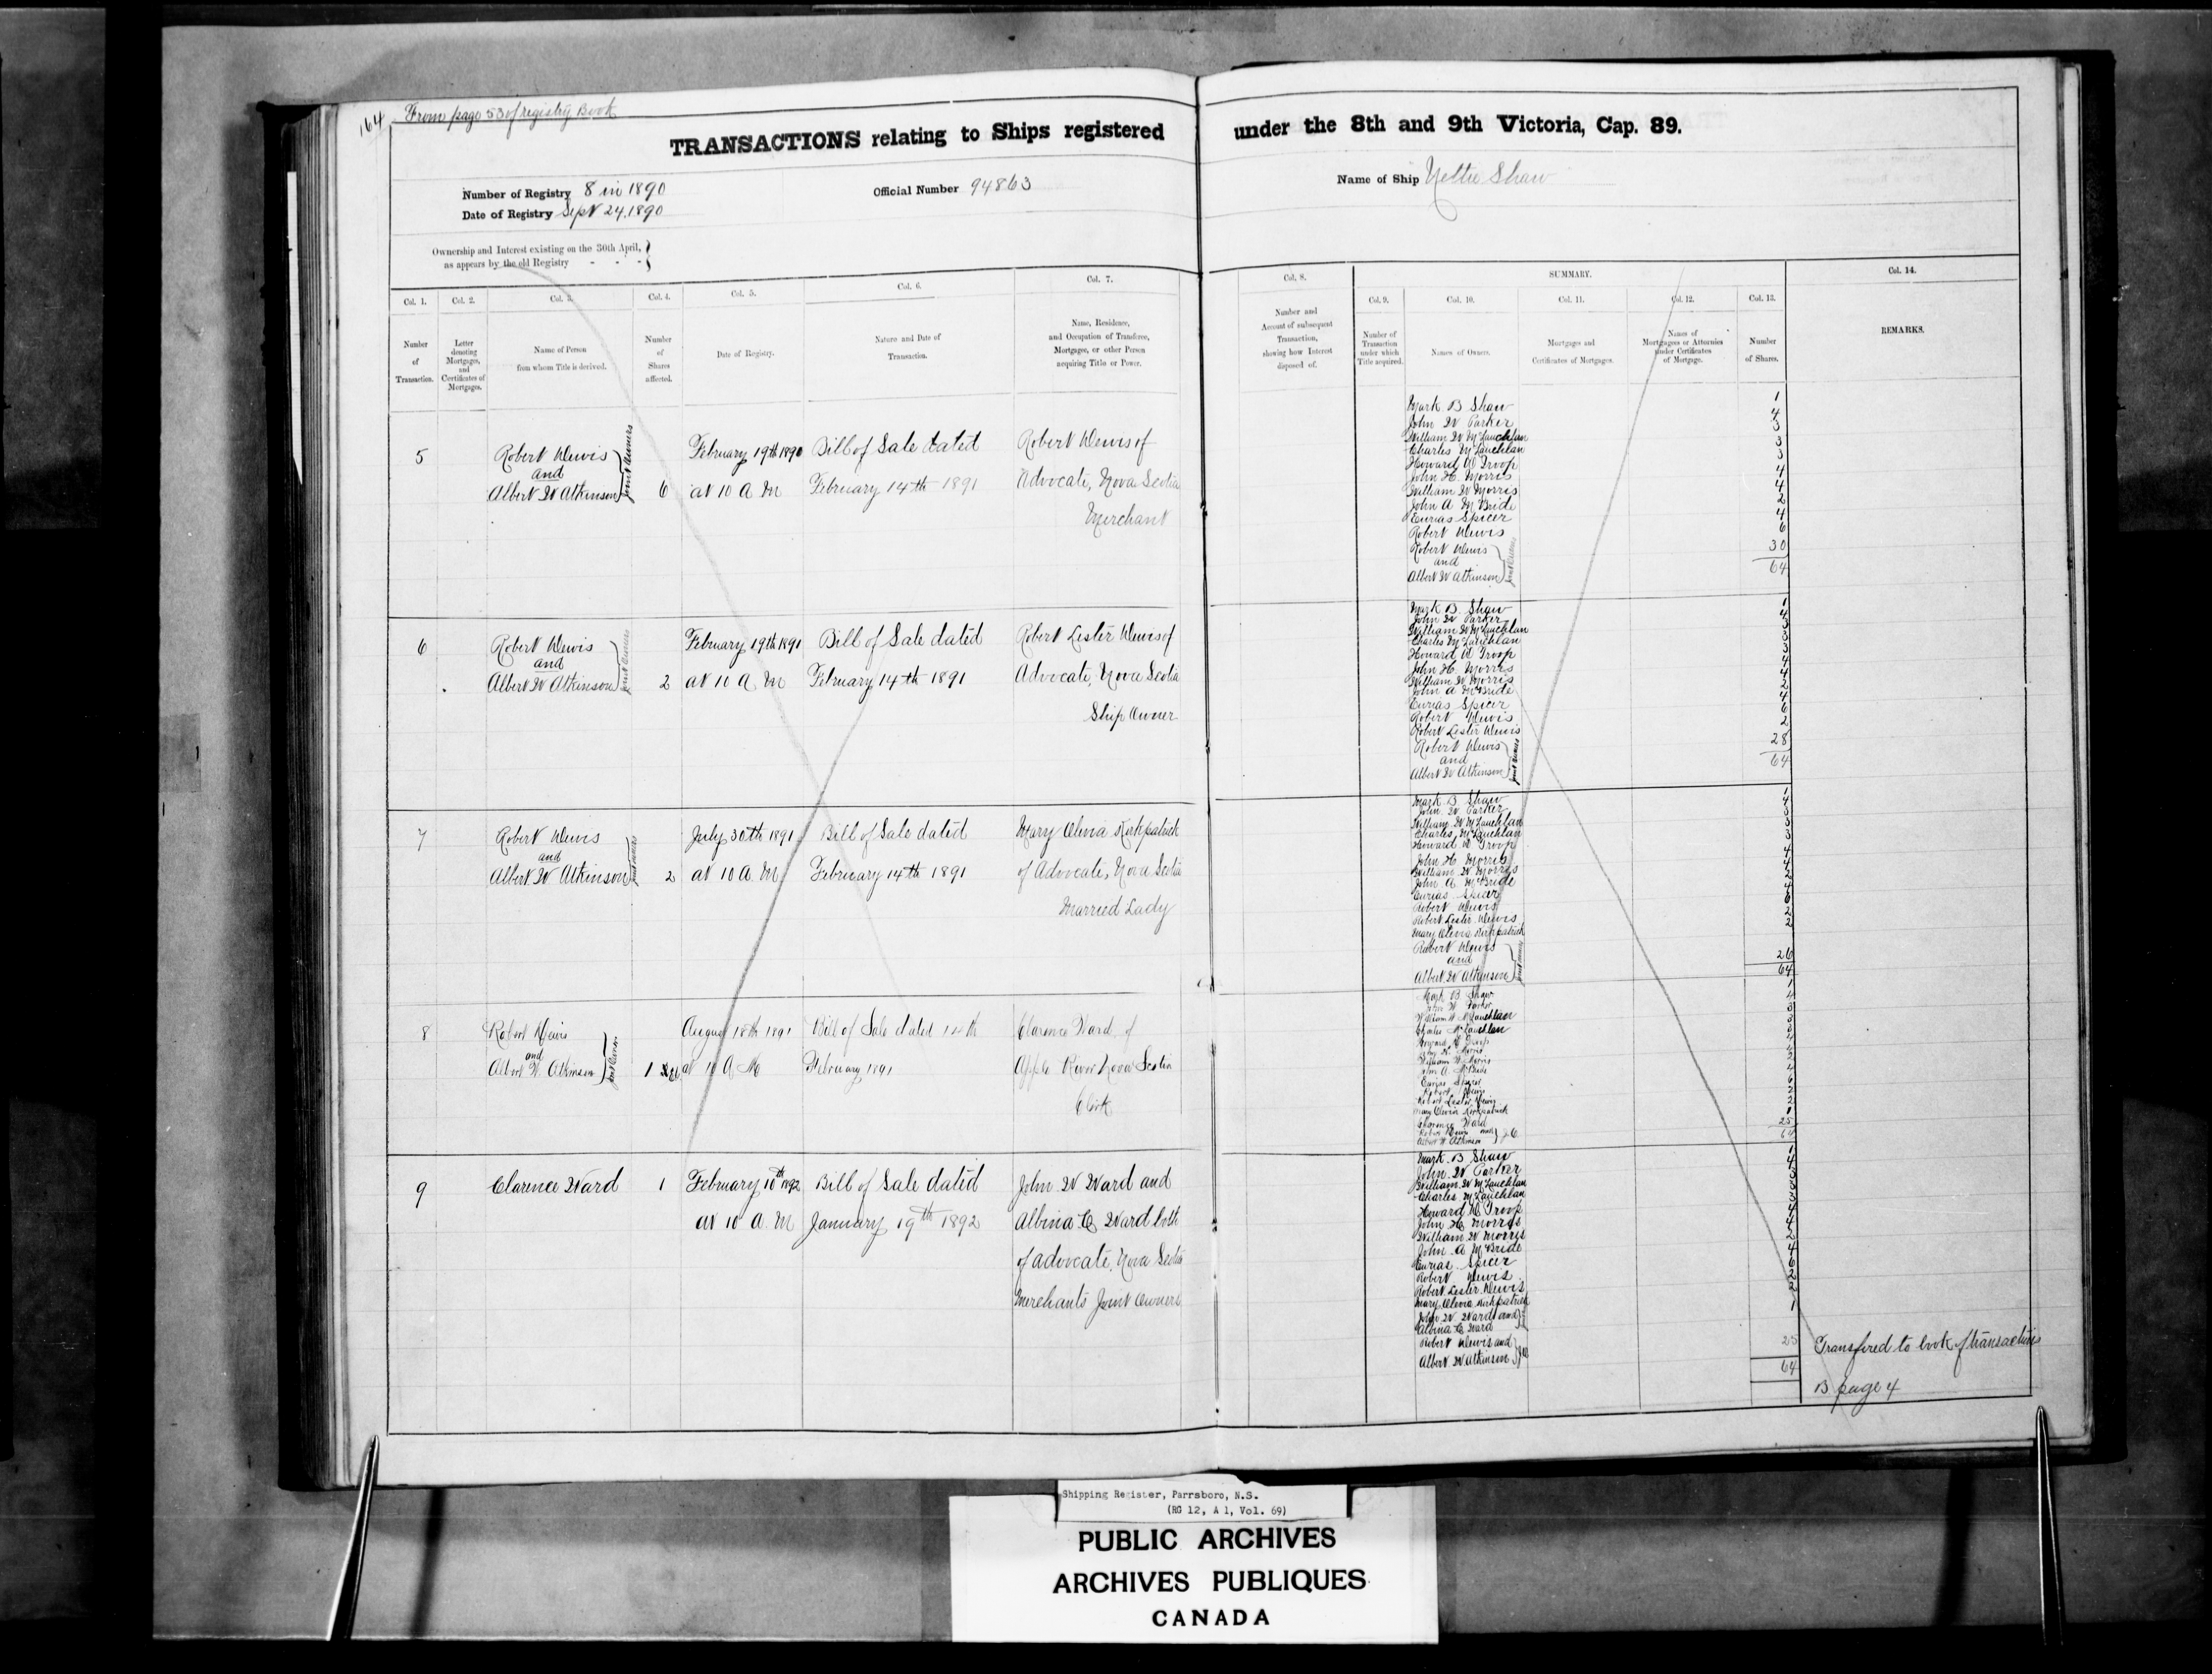 164
From page 53 of registry Book
TRANSACTIONS relating to Ships registered under the 8th and 9th Victoria, Cap. 89.
Number of Registry 8 in 1890
Official Number 94863
Name of Ship Nettie Shaw
Date of Registry Sept 24, 1890
Ownership and Interest existing on the 30th April,
as appears by the old Registry - - -
SUMMARY.
Col. 1. Col. 2. Col. 3. Col. 4. Col. 5. Col. 6. Col. 7. Col. 8. Col. 9. Col. 10. Col. 11. Col. 12. Col. 13. Col. 14.
Number of Transaction.
Letter denoting Mortgages, and Certificates of Mortgages.
Name of Person from whom Title is derived.
Number of Shares affected.
Date of Registry.
Nature and Date of Transaction.
Name, Residence, and Occupation of Transferee, Mortgagee, or other Person acquiring Title or Power.
Number and Account of subsequent Transaction, showing how Interest disposed of.
Number of Transaction under which Title acquired.
Names of Owners.
Mortgages and Certificates of Mortgages.
Names of Mortgagees or Attornies under Certificates of Mortgage.
Number of Shares.
REMARKS.
5
Robert Dewis
and
Albert W Atkinson
Joint Owners
6
February 19th 1890
at 10 A M
Bill of Sale dated
February 14th 1891
Robert Dewis of
Advocate, Nova Scotia
Merchant
Mark B Shaw 1
John W Parker 4
William W McLauchlan 3
Charles McLauchlan 3
Howard D Troop 3
John H. Morris 4
William W Morris 4
John A McBride 2
Eurias Spicer 4
Robert Dewis 6
Robert Dewis
and
Albert W Atkinson
Joint Owners
30
64
6
Robert Dewis
and
Albert W Atkinson
Joint Owners
2
February 19th 1891
at 10 A M
Bill of Sale dated
February 14th 1891
Robert Lester Dewis of
Advocate, Nova Scotia
Ship Owner
Mark B. Shaw 1
John W Parker 4
William W McLauchlan 3
Charles McLauchlan 3
Howard D Troop 3
John H. Morris 4
William W Morris 4
John A McBride 2
Eurias Spicer 4
Robert Dewis 6
Robert Lester Dewis 2
Robert Dewis
and
Albert W Atkinson
Joint Owners
28
64
7
Robert Dewis
and
Albert W Atkinson
Joint Owners
2
July 30th 1891
at 10 A. M
Bill of Sale dated
February 14th 1891
Mary Olivia Kirkpatrick
of Advocate, Nova Scotia
Married Lady
Mark B Shaw 1
John W Parker 4
William W McLauchlan 3
Charles McLauchlan 3
Howard D Troop 3
John H Morris 4
William W Morris 4
John A McBride 2
Eurias Spicer 4
Robert Dewis 6
Robert Lester Dewis 2
Mary Olivia Kirkpatrick 2
Robert Dewis
and
Albert W Atkinson
Joint Owners
26
64
8
Robert Dewis
and
Albert W Atkinson
Joint Owners
1
August 18th 1891
at 10 A M
Bill of Sale dated 14th
February 1891
Clarence Ward of
Apple River Nova Scotia
Clerk
Mark B Shaw 1
John W Parker 4
William W McLauchlan 3
Charles McLauchlan 3
Howard D Troop 3
John H. Morris 4
William W Morris 4
John A. McBride 2
Eurias Spicer 4
Robert Dewis 6
Robert Lester Dewis 2
Mary Olivia Kirkpatrick 2
Clarence Ward 1
Robert Dewis and
Albert W Atkinson
J O
25
64
9
Clarence Ward
1
February 10th 1892
at 10 A. M
Bill of Sale dated
January 19th 1892
John W Ward and
Albina C Ward both
of advocate, Nova Scotia
Merchants Joint Owners
Mark B Shaw 1
John W Parker 4
William W McLauchlan 3
Charles McLauchlan 3
Howard D Troop 3
John H Morris 4
William W Morris 4
John A McBride 2
Eurias Spicer 4
Robert Dewis 6
Robert Lester Dewis 2
Mary Olivia Kirkpatrick 2
John W Ward and
Albina C Ward
1
Robert Dewis and
Albert W Atkinson
25
64
Transfired to book of transactions
B page 4
Shipping Register, Parrsboro, N.S.
(RG 12, A 1, Vol. 69)
PUBLIC ARCHIVES
ARCHIVES PUBLIQUES
CANADA